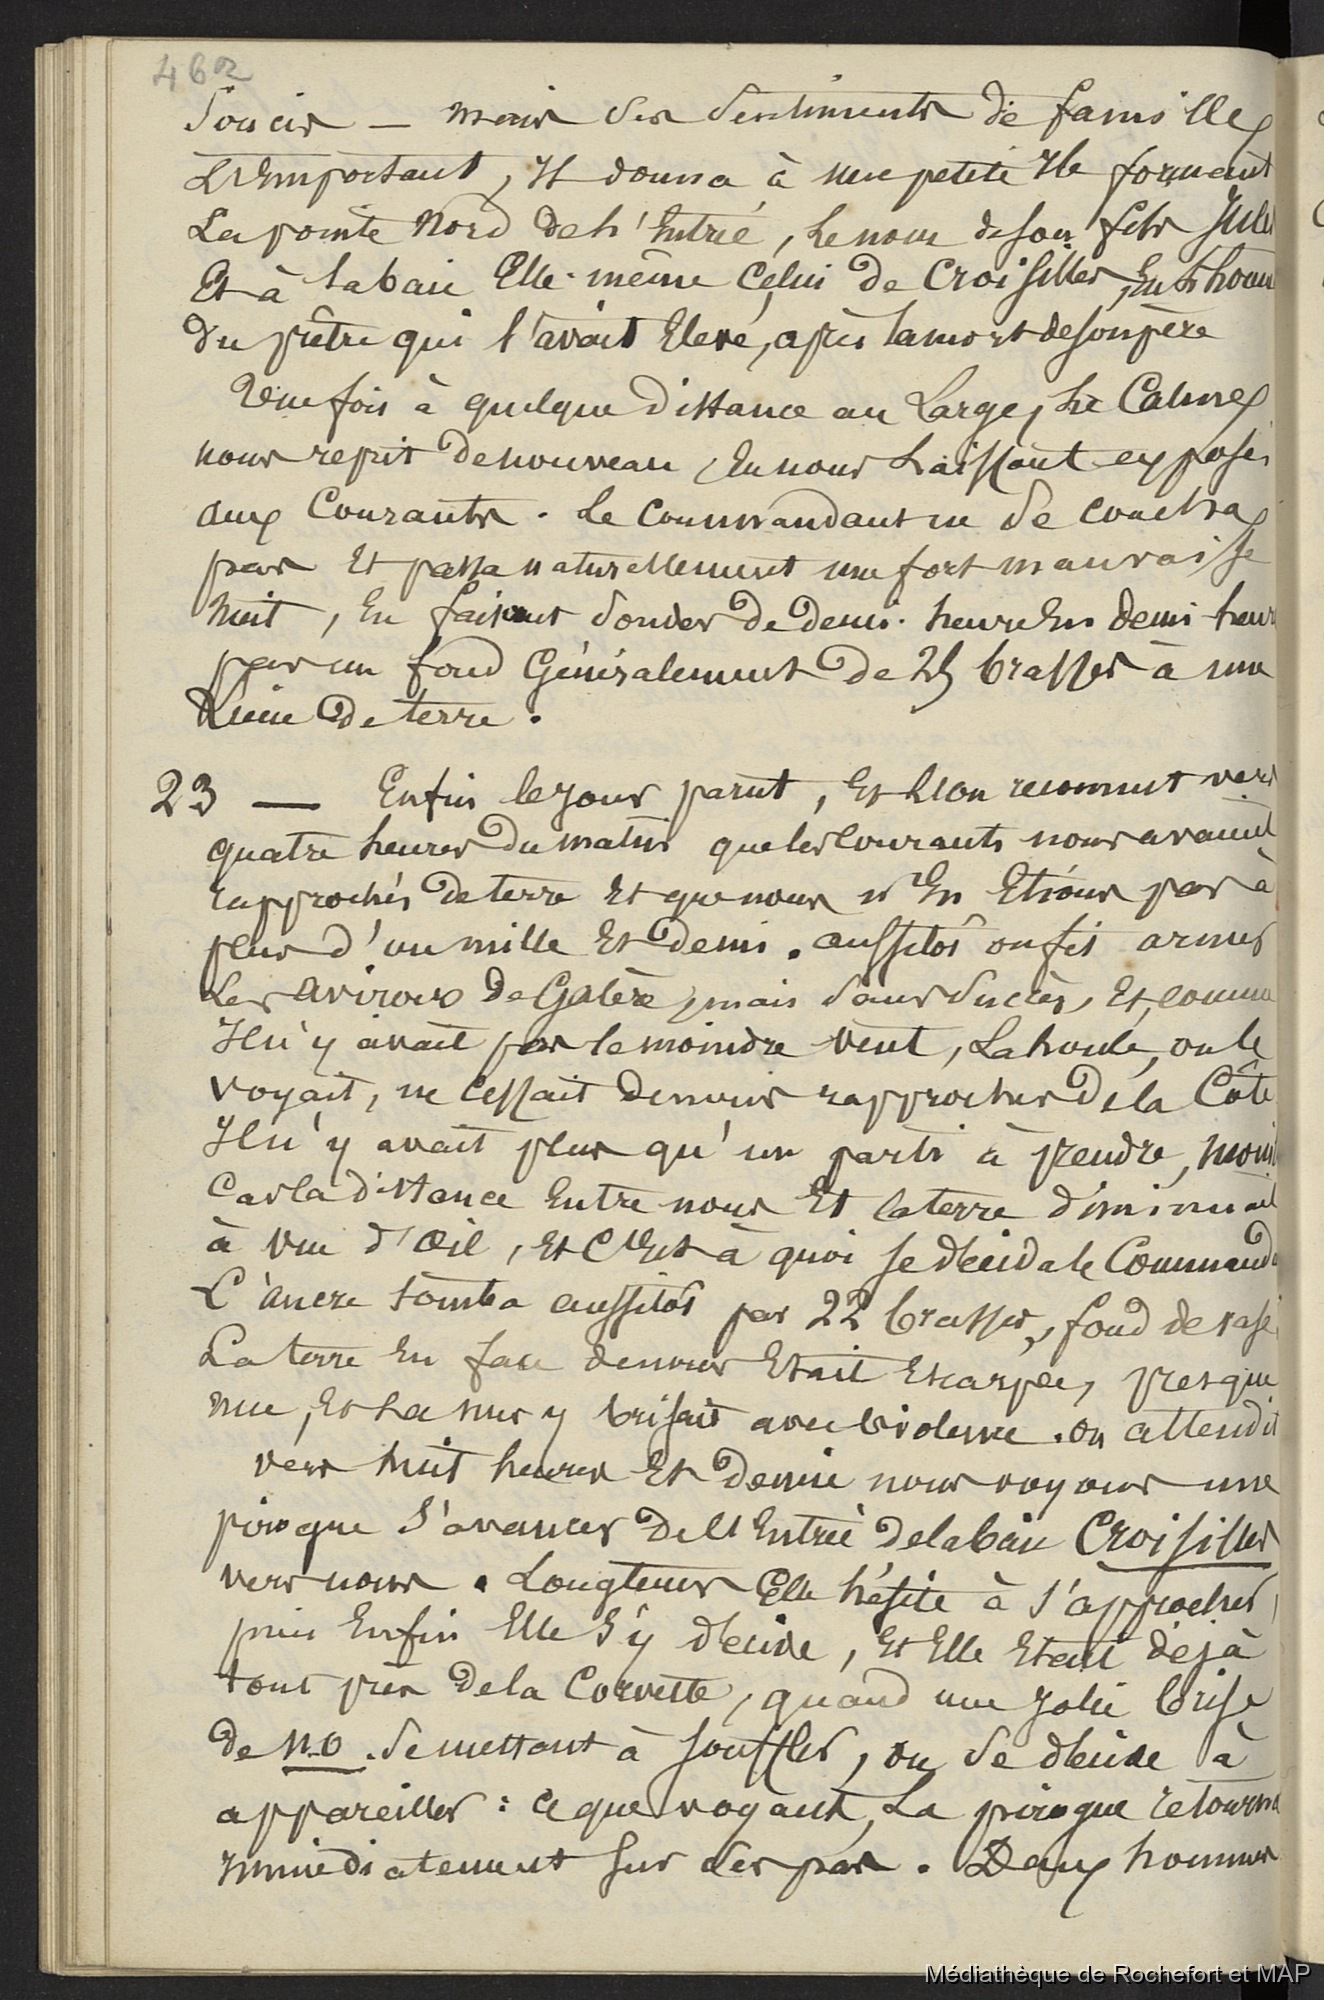 462
Soucis — mais ses sentiments de famille
L'Emportant, Il donna à une petite Ile formant
La pointe Nord de L'Entrée, Le nom de son fils Jules
Et à la baie Elle-même Celui de Croisilles, En
du prêtre qui l'avait Elevé, après la mort de son père
Une fois à quelque distance au Large, Le Calme
nous reprit de nouveau, En nous Laissant exposés
aux Courants. Le Commandant ne se coucha
pas Et passa naturellement une fort mauvaise
Nuit, En faisant sonder de demi-heure En demi heure
par un fond Généralement de 25 brasses à une
Lieue de terre.
23 — Enfin le jour parut, Et L'on reconnut vers
quatre heures du matin que les Courants nous avaient
rapprochés de terre Et que nous n'En Etions pas à
plus d'un mille Et demi. aussitôt on fit armer
Les avirons de Galère, mais sans succès, Et, comme
Il n'y avait pas le moindre vent, La houle, on le
voyait, ne Cessait de nous rapprocher de la Côte
Il n'y avait plus qu'un parti à prendre, mouiller
Car la distance Entre nous Et la terre diminuait
à vue d'Œil, Et C'Est à quoi se décida le Commandant
L'ancre tomba aussitôt par 22 brasses, fond de vase,
La terre En face de nous Etait Escarpée, presque
nue, Et La mer y brisait avec violence. On attendit
vers huit heures Et demie nous voyons une
pirogue S'avancer de l'Entrée de la baie Croisilles
vers nous. Longtems Elle hésite à s'approcher,
puis Enfin Elle S'y décide, Et Elle Etait déjà
tout près de la Corvette, quand une Jolie brise
de N.O. se mettant à souffler, on se décide à
appareiller : ce que voyant, La pirogue retourna
immédiatement sur ses pas. Deux hommes
Médiathèque de Rochefort et MAP